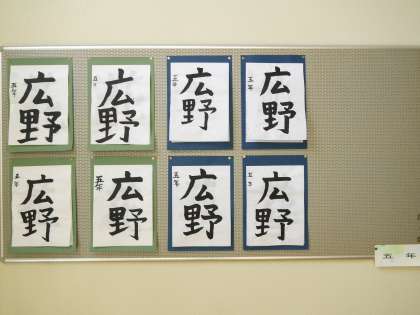 広野
五年
広野
五年
広野
五年
広野
五年
広野
五年
広野
五年
広野
五年
広野
五年
五年